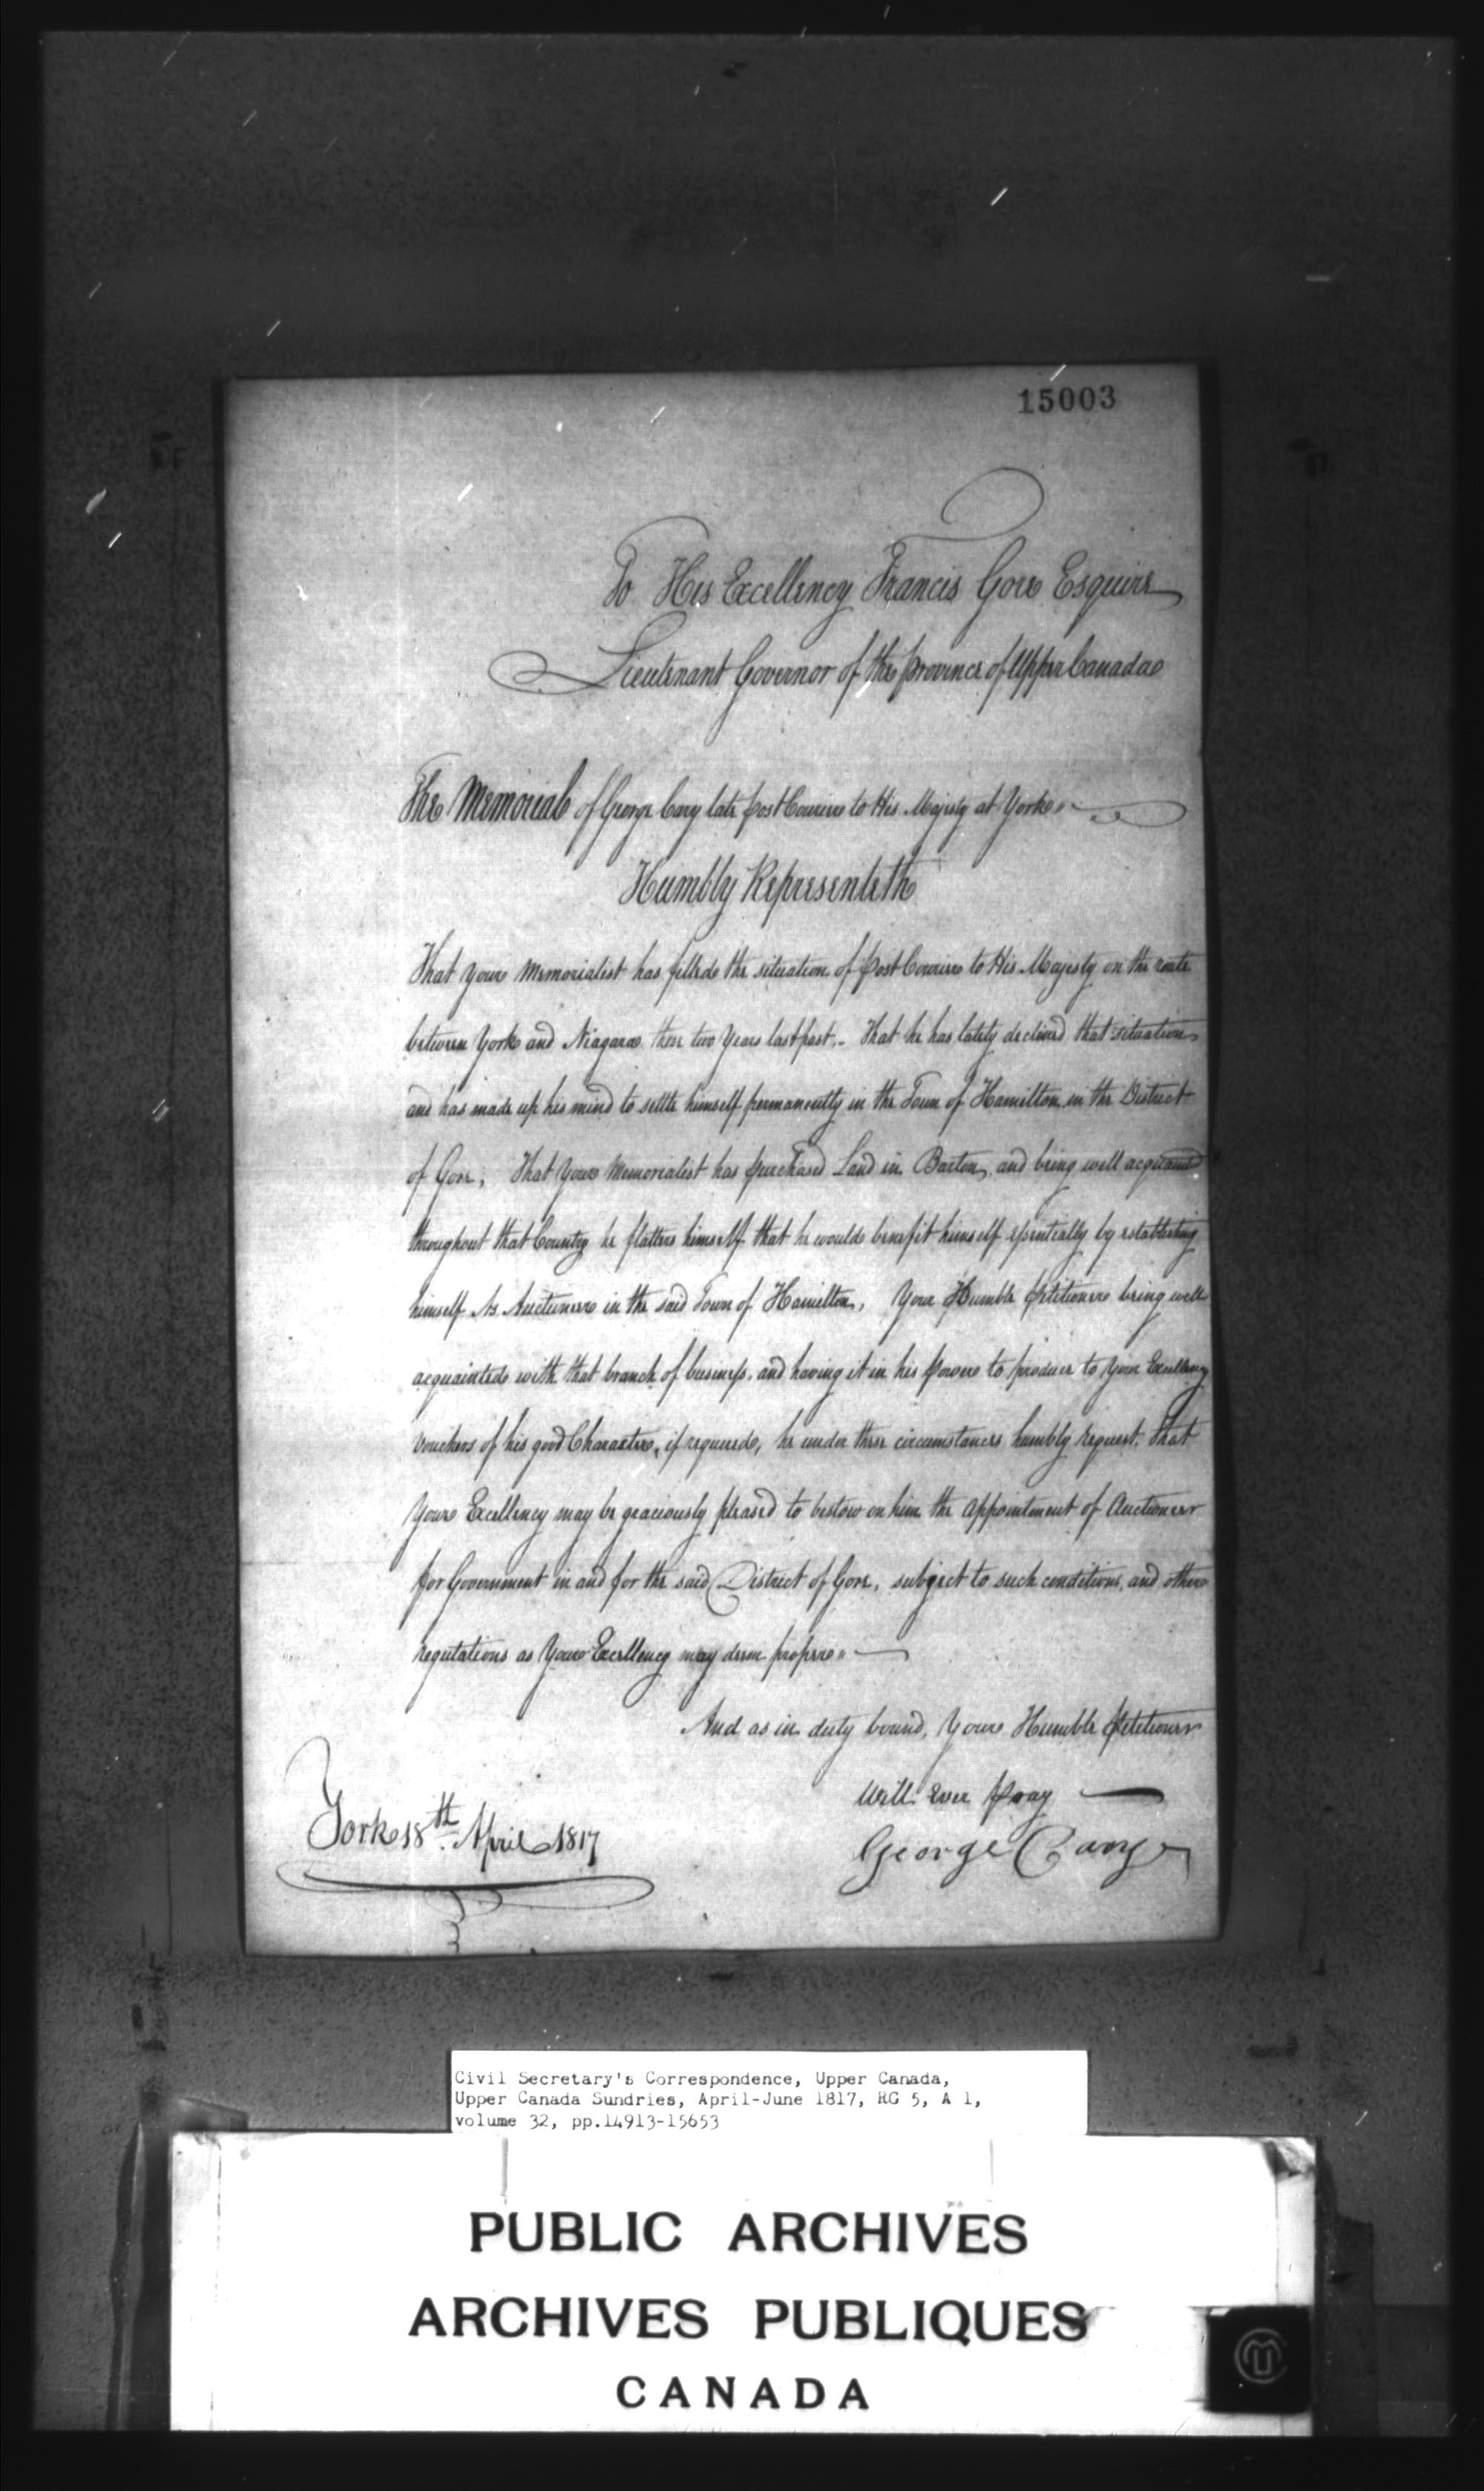 15003
To His Excellency Francis Gore Esquire
Lieutenant Governor of the Province of Upper Canada
The Memorial of George Cary late Post Courier to His Majesty at York
Humbly Representeth
That your Memorialist has filled the situation of Post Courier to His Majesty on the route
between York and Niagara these two Years last past. That he has lately declined that situation
and has made up his mind to settle himself permanently in the Town of Hamilton in the District
of Gore, That Your Memorialist has purchased Land in Barton, and being well acquainted
throughout that Country he flatters himself that he would benefit himself essentially by establishing
himself As Auctineer in the said Town of Hamilton, Your Humble Petitioner being well
acquainted with that branch of business, and having it in his power to produce to Your Excellency
vouchers of his good Character, if required, he under these circumstances humbly request, that
Your Excellency may be graciously pleased to bestow on him the appointment of Auctioneer
for Government in and for the said District of Gore, subject to such conditions, and other
regulations as Your Excellency may deem proper
And as in duty bound, Your Humble Petitioner
Will Ever Pray
York 18th April 1817
George Cary
Civil Secretary's Correspondence, Upper Canada,
Upper Canada Sundries, April-June 1817, RG 5, A 1,
volume 32, pp.14913-15653
PUBLIC ARCHIVES
ARCHIVES PUBLIQUES
CANADA